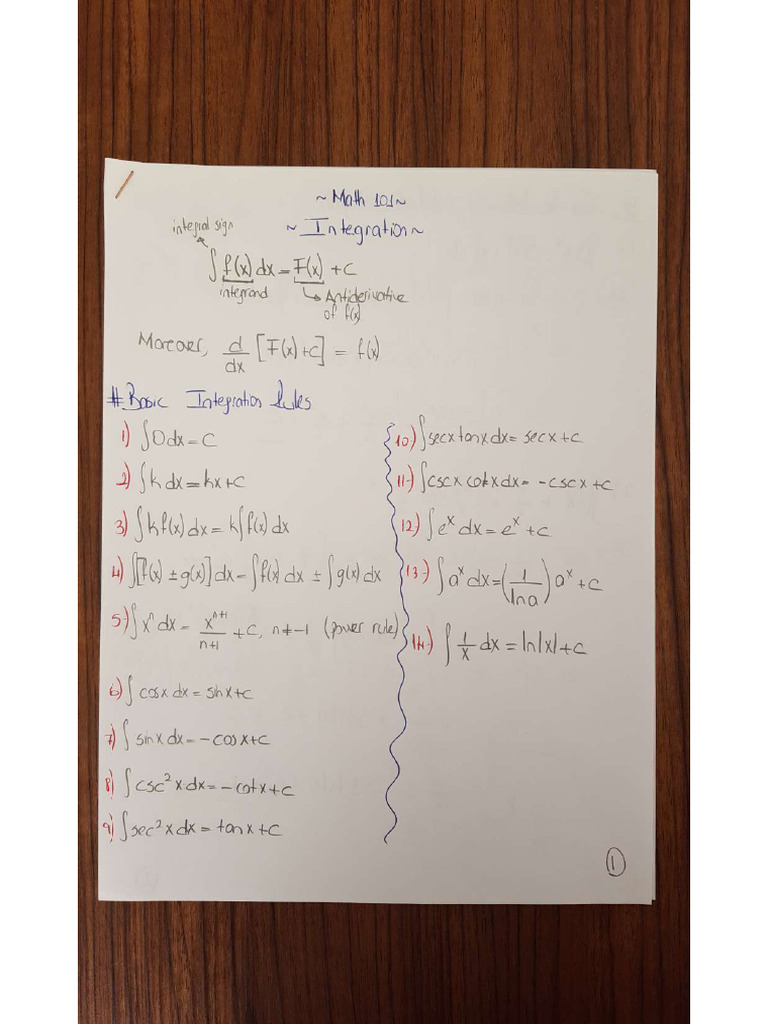 ~ Math 101 ~
~ Integration ~
integral sign
∫ f(x) dx = F(x) + C
integrand
↳ Antiderivative
of f(x)
Moreover, d/dx [F(x)+C] = f(x)
# Basic Integration Rules
1) ∫0 dx = C
2) ∫k dx = kx+C
3) ∫kf(x) dx = k∫f(x) dx
4) ∫[f(x) ± g(x)] dx = ∫f(x) dx ± ∫g(x) dx
5) ∫xⁿ dx = xⁿ⁺¹/n+1 + C, n≠-1 (power rule)
6) ∫ cosx dx = sinx+c
7) ∫ sinx dx = -cosx+c
8) ∫ csc²x dx = -cotx+c
9) ∫ sec²x dx = tanx+c
10-) ∫secxtanx dx = secx+c
11-) ∫cscxcotx dx = -cscx+c
12) ∫eˣ dx = eˣ + c
13-) ∫aˣ dx = (1/lna) aˣ + c
14-) ∫ 1/x dx = ln|x| + c
1